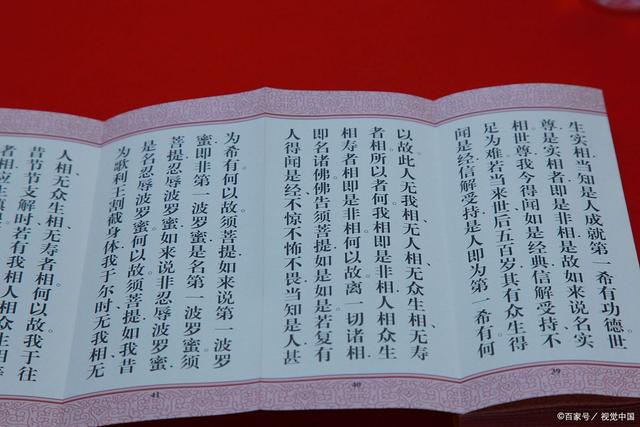 生实相。当知是人成就第一希有功德。世
尊。是实相者。即是非相。是故如来说名实
相。世尊。我今得闻如是经典。信解受持。不
足为难。若当来世后五百岁。其有众生得
闻是经。信解受持。是人即为第一希有。何
39
以故。此人无我相、无人相、无众生相、无寿
者相。所以者何。我相即是非相。人相众生
相寿者相即是非相。何以故。离一切诸相。
即名诸佛。佛告须菩提。如是如是。若复有
人得闻是经。不惊不怖不畏。当知是人甚
40
为希有。何以故。须菩提。如来说第一波罗
蜜。即非第一波罗蜜。是名第一波罗蜜。须
菩提。忍辱波罗蜜。如来说非忍辱波罗蜜。
是名忍辱波罗蜜。何以故。须菩提。如我昔
为歌利王割截身体。我于尔时。无我相、无
41
人相、无众生相、无寿者相。何以故。我于往
昔节节支解时。若有我相人相众生相
者相。应生
©百家号/视觉中国